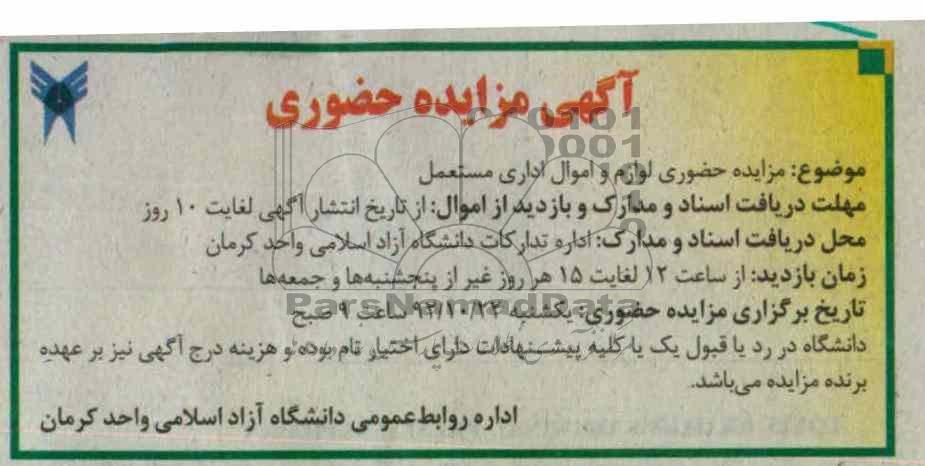 آگهی مزایده حضوری
موضوع: مزایده حضوری لوازم و اموال اداری مستعمل
مهلت دریافت اسناد و مدارک و بازدید از اموال: از تاریخ انتشار آگهی لغایت ۱۰ روز
محل دریافت اسناد و مدارک: اداره تدارکات دانشگاه آزاد اسلامی واحد کرمان
زمان بازدید: از ساعت ۱۲ لغایت ۱۵ هر روز غیر از پنجشنبه‌ها و جمعه‌ها
تاریخ برگزاری مزایده حضوری: یکشنبه ۹۲/۱۰/۲۲ ساعت ۹ صبح
دانشگاه در رد یا قبول یک یا کلیه پیشنهادات دارای اختیار تام بوده و هزینه درج آگهی نیز بر عهده
برنده مزایده می‌باشد.
اداره روابط‌عمومی دانشگاه آزاد اسلامی واحد کرمان
ParsNamadData